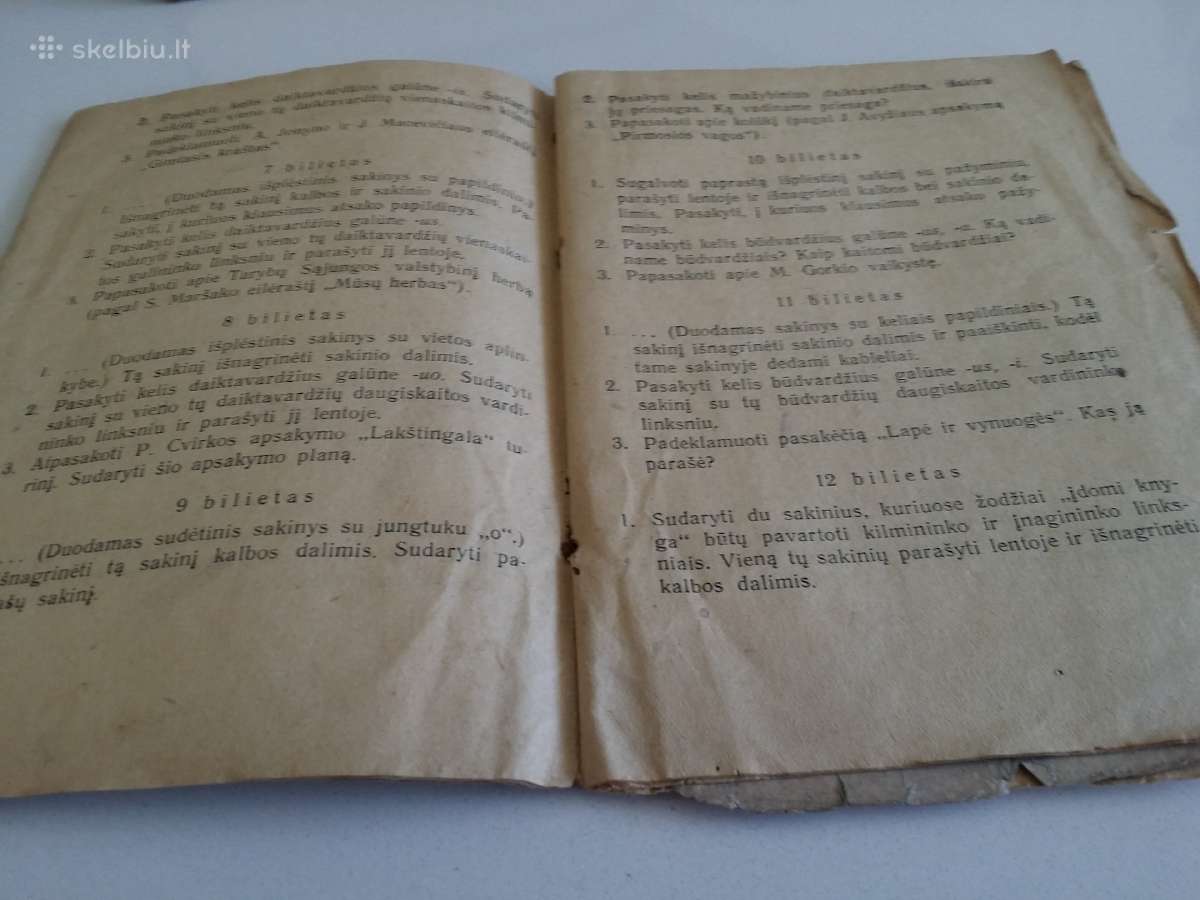 skelbiu.lt
2. Pasakyti kelis daiktavardžius galūne Sudaryti
sakinį su vieno tų daiktavardžių vienaskaitos kilmi-
ninko linksniu.
3. Padeklamuoti A. Jonyno ir J. Macevičiaus eilėraštį
„Gimtasis kraštas“.
7 bilietas
1. ... (Duodamas išplėstinis sakinys su papildiniu.)
Išnagrinėti tą sakinį kalbos ir sakinio dalimis. Pa-
sakyti, į kuriuos klausimus atsako papildinys.
2. Pasakyti kelis daiktavardžius galūne -us.
Sudaryti sakinį su vieno tų daiktavardžių vienaskai-
tos galininko linksniu ir parašyti jį lentoje.
3. Papasakoti apie Tarybų Sąjungos valstybinį herbą
(pagal S. Maršako eilėraštį „Mūsų herbas“).
8 bilietas
1. (Duodamas išplėstinis sakinys su vietos aplin-
kybe.) Tą sakinį išnagrinėti sakinio dalimis.
2. Pasakyti kelis daiktavardžius galūne -uo. Sudaryti
sakinį su vieno tų daiktavardžių daugiskaitos vardi-
ninko linksniu ir parašyti jį lentoje.
3. Atpasakoti P. Cvirkos apsakymo „Lakštingala“ tu-
rinį. Sudaryti šio apsakymo planą.
9 bilietas
... (Duodamas sudėtinis sakinys su jungtuku „o“.)
išnagrinėti tą sakinį kalbos dalimis. Sudaryti pa-
ašų sakinį.
2. Pasakyti kelis mažybinius daiktavardžius, išskirti
jų priesagas. Ką vadiname priesaga?
3. Papasakoti apie kolūkį (pagal J. Avyžiaus apsakymą
„Pirmosios vagos“).
10 bilietas
1. Sugalvoti paprastą išplėstinį sakinį su pažyminiu,
parašyti lentoje ir išnagrinėti kalbos bei sakinio da-
limis. Pasakyti, į kuriuos klausimus atsako pažy-
minys.
2. Pasakyti kelis būdvardžius galūne -us, -a. Ką vadi-
name būdvardžiais? Kaip kaitomi būdvardžiai?
3. Papasakoti apie M. Gorkio vaikystę.
11 bilietas
1. ... (Duodamas sakinys su keliais papildiniais.) Tą
sakinį išnagrinėti sakinio dalimis ir paaiškinti, kodėl
tame sakinyje dedami kableliai.
2. Pasakyti kelis būdvardžius galūne -us, -i. Sudaryti
sakinį su tų būdvardžių daugiskaitos vardininko
linksniu.
3. Padeklamuoti pasakėčią „Lapė ir vynuogės“. Kas ją
parašė?
12 bilietas
1. Sudaryti du sakinius, kuriuose žodžiai „įdomi kny-
ga“ būtų pavartoti kilmininko ir įnagininko links-
niais. Vieną tų sakinių parašyti lentoje ir išnagrinėti
kalbos dalimis.